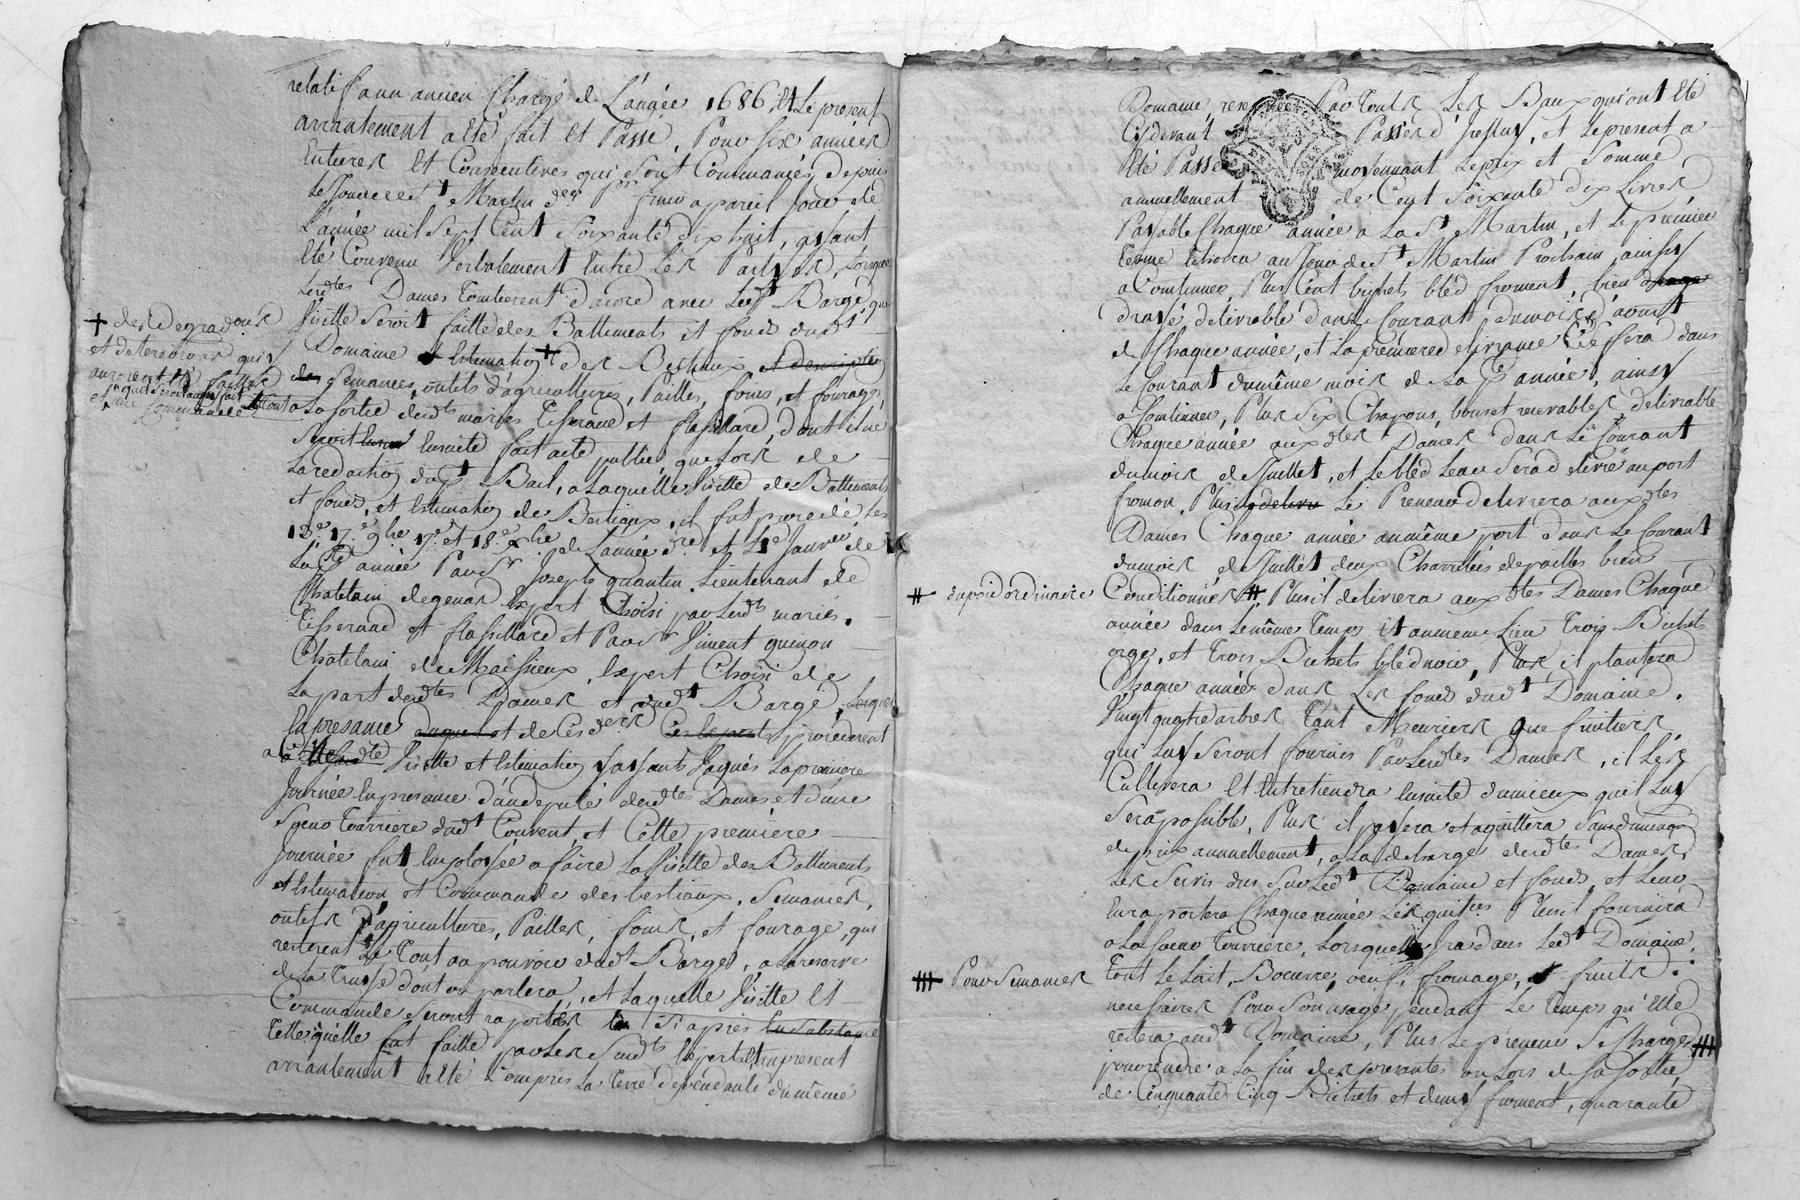 relatif a un ancien Chargé de L'année 1686, et Le present
arrantement a eté fait et Passé, Pour Six années
Entieres et Consecutives qui sont Commancés depuis
Le Jour et St Martin dernier
L'année mil Sept Cent Soixante dix huit, ayant
Eté Convenu Verbalement Entre Les Parties, Lorsque
Lesdtes Dames Tomberent d'acord avec Ledt Bargé, que
Visitte Seroit faitte des Battiments et fonds dudt
Domaine et Estimation + des Bestiaux et
des Semances, outils d'agricultures, Pailles, foins, et fourages,
a La Sortie desdts mariés Tisserand et flassillard, dont il ne
Seroit Ensuitte fait acte public que Lors de
La redaction du pt Bail, a Laquelle Visitte de Battiments
et fonds, et Estimation de Bestiaux, il fut procedé Les
+ des degradations
et deteriorations qui y
auroient été faittes
L'année dre et Le Janvier de
La Cte année Par Sr Joseph quantin Lieutenant de
Chatelain de genas Expert Choisi par Lesdts mariés
Tisserand et flassillard et Par Sr Vincent guinon
Chatelain de Maissieux, Expert Choisi de
La part desdtes Dames et dudt Bargé, Lesquels
En presance et de Ces ders procederent
a Ce Visitte et Estimation y ayants Vaqués La premiere
Journée En presance d'un deputé desdtes Dames et d'une
Soeur Tourriere dudt Couvent, et Cette premiere
Journée fut Employée a faire La Visitte des Battiments
et Estimation, et Commande des bestiaux, Semances,
outils d'agricultures, Pailles, foins, et fourage, qui
resterent Le Tout au pouvoir dudt Bargé, a La reserve
de La Truye dont on parlera, et Laquelle Visitte et
Commande Seront raportés Ci apres En Substance
Telle qu'elle fut faitte par Les Susdts Experts, Et au present
arrantement a eté Compris La Terre dependante du même
Domaine Par Touts Les Baux qui ont Eté
Cy devant Passés d'Iceluy, et Le present a
Eté Passé moyennant Le prix et Somme
annuellement de Cent Soixante dix Livres
Payable Chaque année a La St Martin, et Le premier
Terme Echoira au Jour de St Martin Prochain, ainsy
a Continuer, Plus Cent bichets bled froment, bien
delivrable dans Le Courant du mois d'aoust
de Chaque année, et La premiere delivrance Ce fera dans
Le Courant du même mois de La Pte année, ainsy
a Continuer, Plus Six Chapons, bons et recevables delivrable
Chaque année aux dtes Dames dans Le Courant
du mois de Juillet, et Le bled Leur Sera delivré au port
fromon. Plus Le Preneur delivrera aux dtes
Dames Chaque année au même port dans Le Courant
du mois de Juillet deux Charretées de pailles bien
# du poid ordinaire
Conditionnés # Plus il delivrera aux dtes Dames Chaque
année dans Le même Temps Et au meme Lieu Trois Bichets
orge, et Trois Bichets bled noir, Plus il plantera
Chaque année dans Les fonds dudt Domaine
Vingt quatre arbres Tant Meuriers que fruitiers
qui Luy Seront fournis Par Lesdtes Dames, il Les
Cultivera Et Entretiendra Ensuitte du mieux qu'il Luy
Sera possible, Plus il payera et aquittera, Sans diminution
de prix annuellement, a La decharge desdtes Dames,
Les Servis dus Sur Ledt Domaine et fonds et Leur
En raportera Chaque année Les quittes Plus il fournira
a La Soeur Tourriere Lorsqu'elle Sera dans Ledt Domaine,
Tout Le Lait, Beurre, oeufs, fromage, et fruits
necessaires Pour Son usage pendant Le Temps qu'elle
restera audt Domaine, Plus Le preneur Se Charge
pour rendre a La fin des presantes ou Lors de Sa Sortie
de Cinquante Cinq Bichets et demy froment, quarante
# Pour Semances